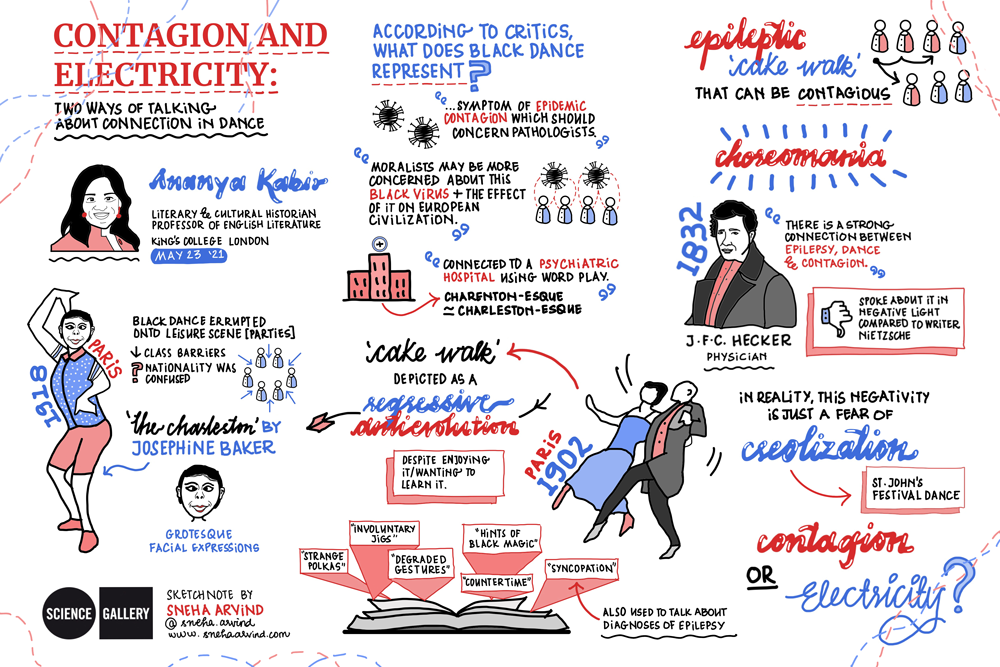 CONTAGION AND
ELECTRICITY:
TWO WAYS OF TALKING
ABOUT CONNECTION IN DANCE
Ananya Kabir
LITERARY & CULTURAL HISTORIAN
PROFESSOR OF ENGLISH LITERATURE
KING'S COLLEGE LONDON
MAY 23 '21
1918
PARIS
BLACK DANCE ERRUPTED
ONTO LEISURE SCENE [PARTIES]
↓ CLASS BARRIERS
? NATIONALITY WAS
CONFUSED
'the charleston' BY
JOSEPHINE BAKER
GROTESQUE
FACIAL EXPRESSIONS
SCIENCE GALLERY
SKETCHNOTE BY
SNEHA ARVIND
@sneha.arvind
www.snehaarvind.com
ACCORDING TO CRITICS,
WHAT DOES BLACK DANCE
REPRESENT?
"...SYMPTOM OF EPIDEMIC
CONTAGION WHICH SHOULD
CONCERN PATHOLOGISTS."
"MORALISTS MAY BE MORE
CONCERNED ABOUT THIS
BLACK VIRUS + THE EFFECT
OF IT ON EUROPEAN
CIVILIZATION."
"CONNECTED TO A PSYCHIATRIC
HOSPITAL USING WORD PLAY."
CHARENTON-ESQUE
≃ CHARLESTON-ESQUE
'cake walk'
DEPICTED AS A
regressive
antievolution
DESPITE ENJOYING
IT/WANTING TO
LEARN IT.
PARIS
1902
"STRANGE
POLKAS"
"INVOLUNTARY
JIGS"
"DEGRADED
GESTURES"
"HINTS OF
BLACK MAGIC"
"COUNTERTIME"
"SYNCOPATION"
ALSO USED TO TALK ABOUT
DIAGNOSES OF EPILEPSY
epileptic
'cake walk'
THAT CAN BE CONTAGIOUS
choreomania
1832
"THERE IS A STRONG
CONNECTION BETWEEN
EPILEPSY, DANCE
& CONTAGION."
J.F.C. HECKER
PHYSICIAN
SPOKE ABOUT IT IN
NEGATIVE LIGHT
COMPARED TO WRITER
NIETZSCHE
IN REALITY, THIS NEGATIVITY
IS JUST A FEAR OF
creolization
ST. JOHN'S
FESTIVAL DANCE
contagion
OR
Electricity?